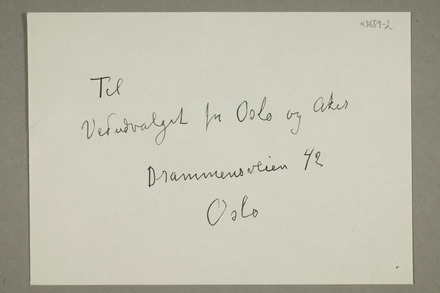 N3659-2
Til
Vedudvalget for Oslo og Aker
Drammensveien 42
Oslo